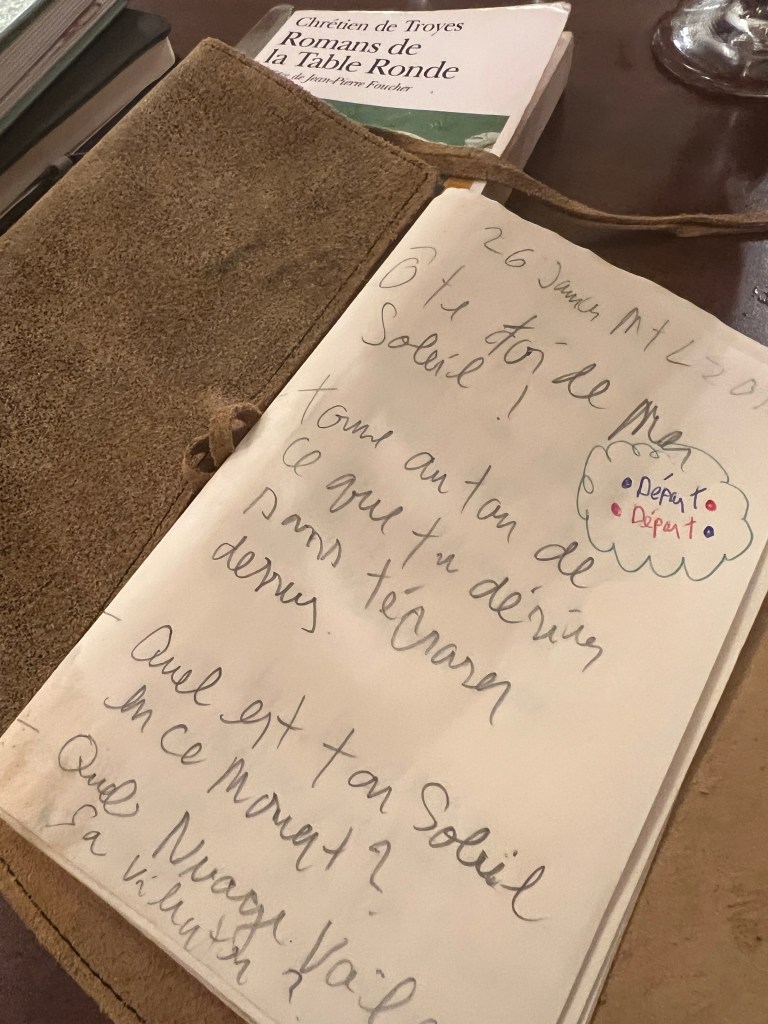 Chrétien de Troyes
Romans de
la Table Ronde
de Jean-Pierre Foucher
26 Janvier MTL 201
Ô te toi de Mon
Soleil !
- tourne autour de
ce que tu désires
sans t'écraser
dessus.
• Départ •
• Départ •
- Quel est ton Soleil
en ce moment ?
- Quel Nuage Voile
Sa